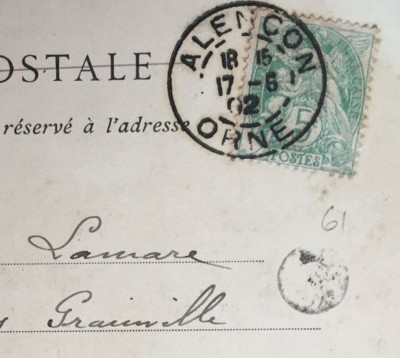 ALENÇON
18 15
OSTALE
17 - 6
02
ORNE
5
POSTES
réservé à l'adresse
61
Lamare
Grainville